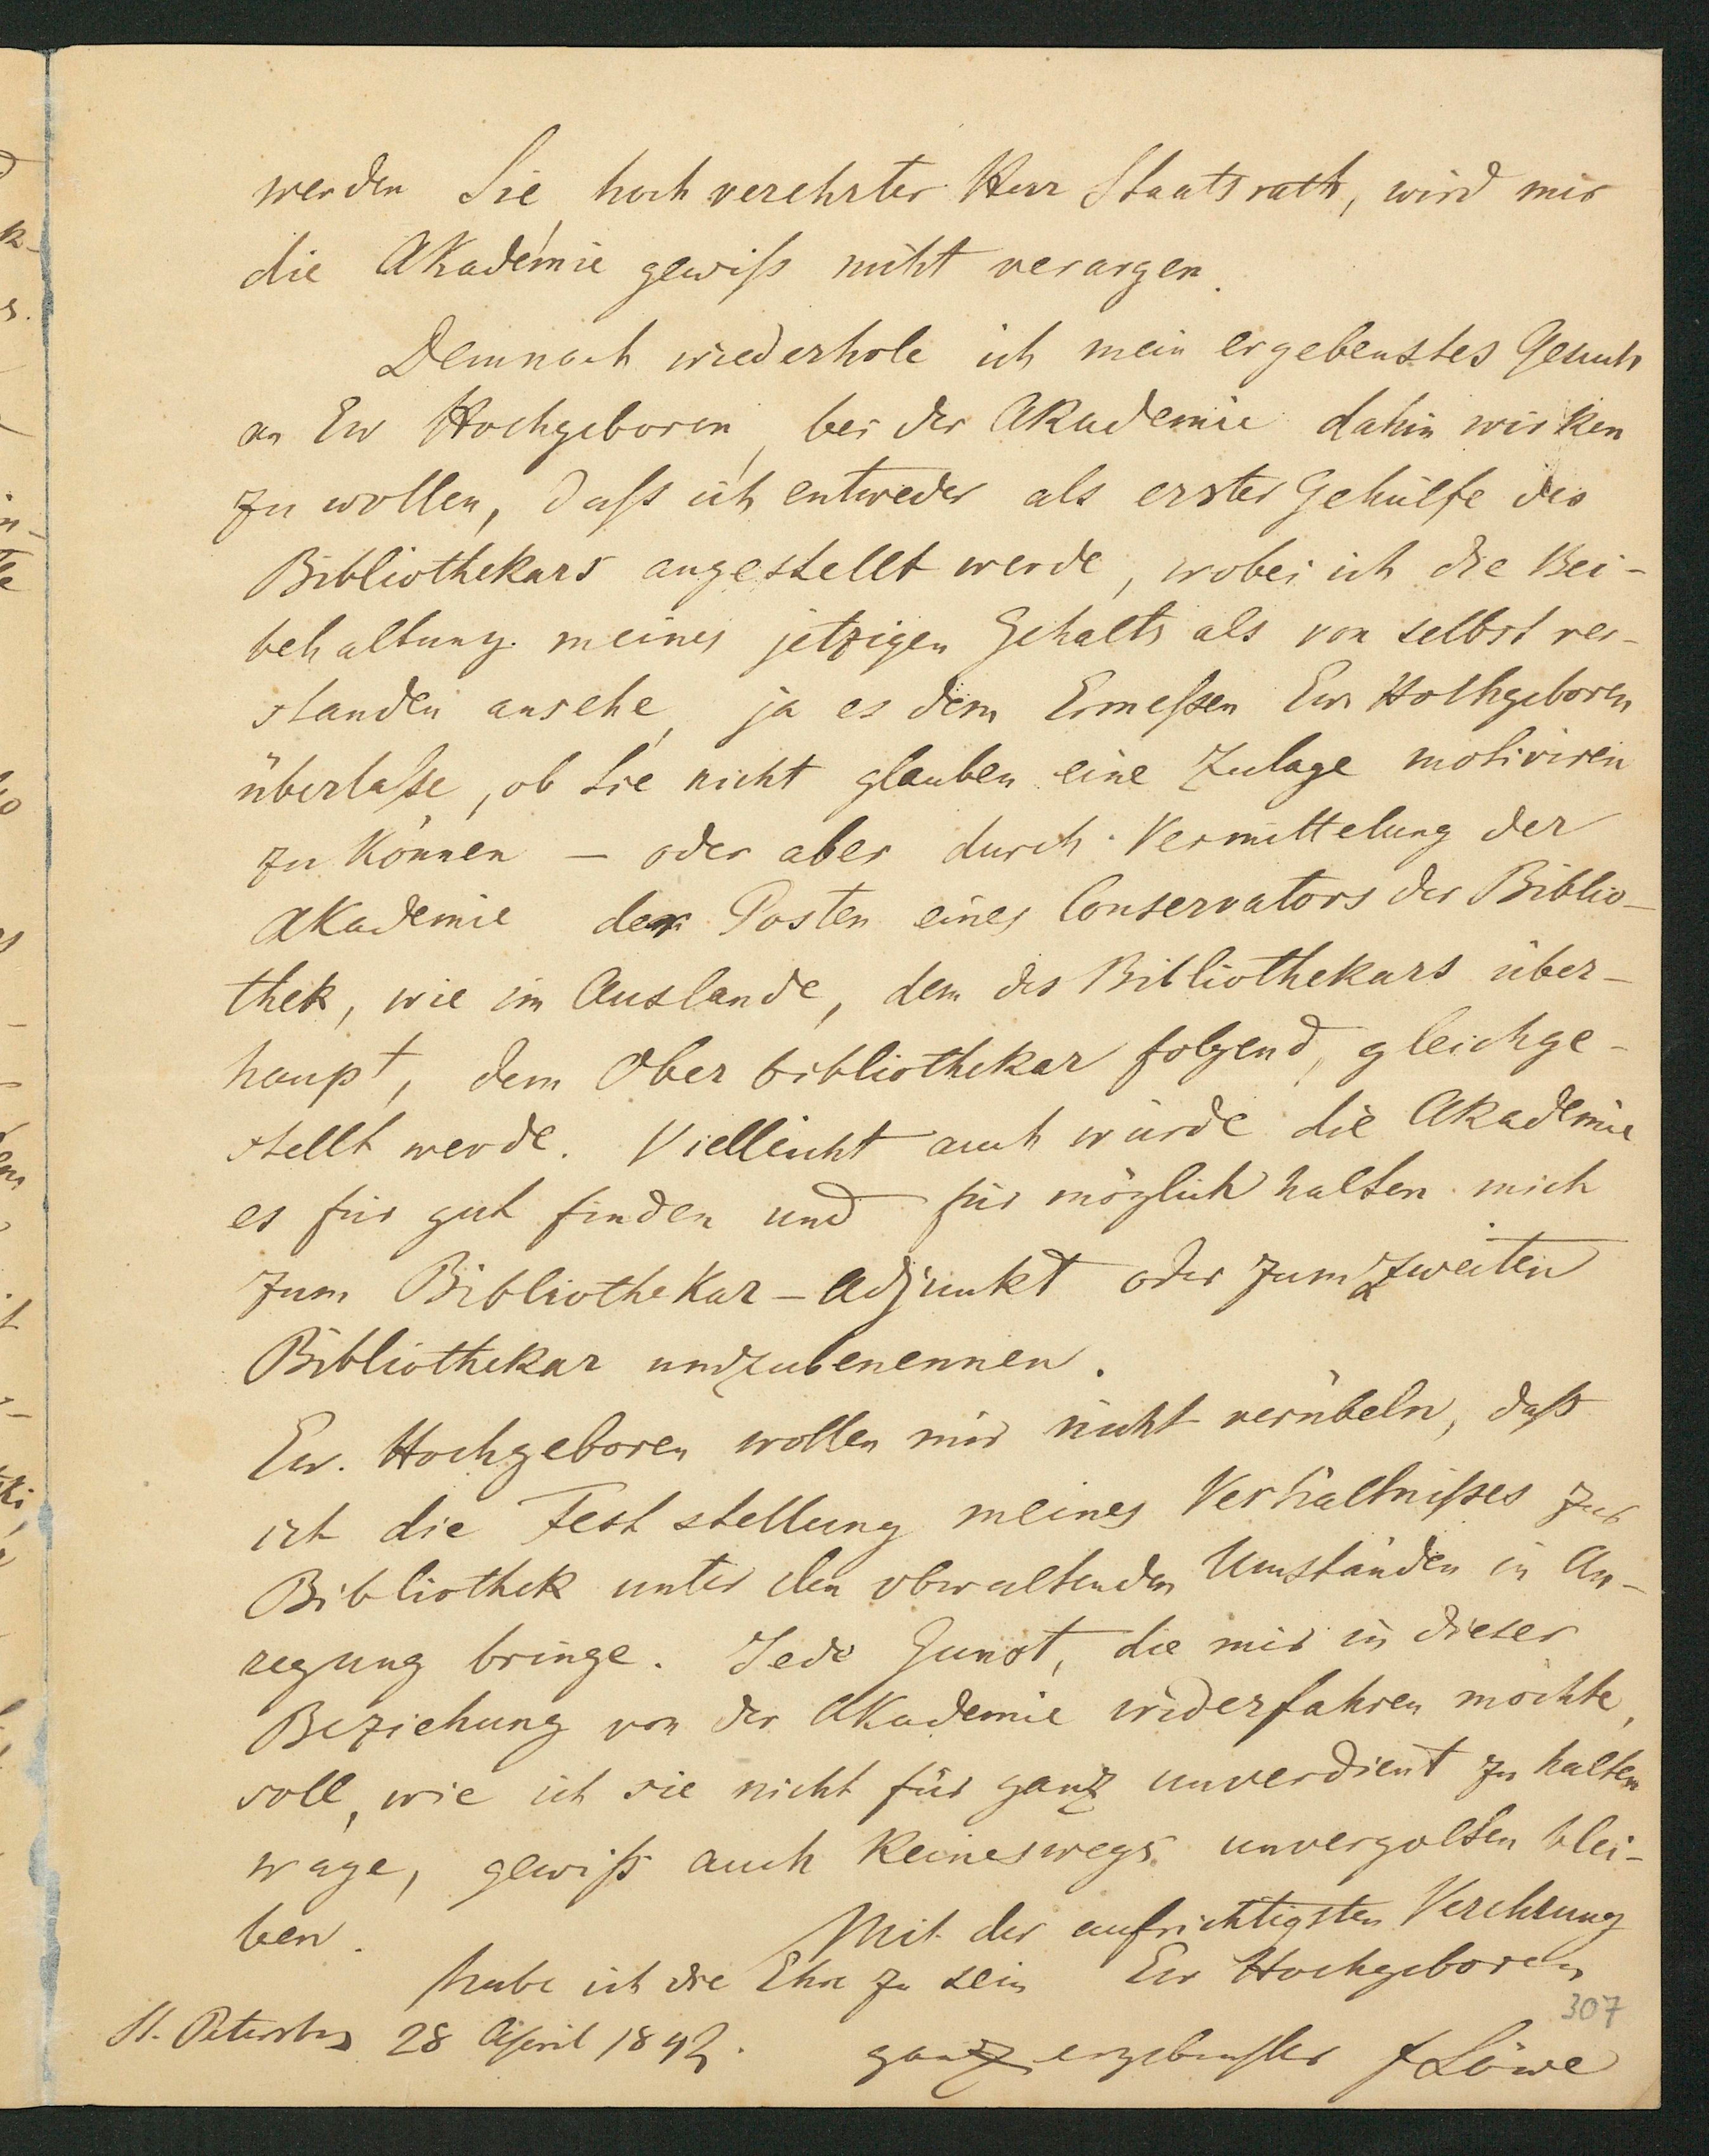 werden Sie, hochverehrter Herr Staatsrath, wird mir
die Akademie gewiß nicht verargen.
Demnach wiederhole ich mein ergebenstes Gesuch
an Ew Hochgeboren, bei der Akademie dahin wirken
zu wollen, daß ich entweder als erster Gehülfe des
Bibliothekars angestellt werde, wobei ich die Bei-
behaltung meines jetzigen Gehalts als von selbst ver-
standen ansehe, ja es dem Ermeßen Ew Hochgeboren
überlaße, ob Sie nicht glauben eine Zulage motiviren
zu können – oder aber durch Vermittelung der
Akademie der Posten eines Conservators der Biblio-
thek, wie im Auslande, dem des Bibliothekars über-
haupt, dem Oberbibliothekar folgend, gleichge-
stellt werde. Vielleicht auch würde die Akademie
es für gut finden und für möglich halten mich
zum Bibliothekar-Adjunkt oder zum zweiten
Bibliothekar umzubenennen.
Ew. Hochgeboren wollen mir nicht verübeln, daß
ich die Feststellung meines Verhältnißes zur
Bibliothek unter den obwaltenden Umständen in An-
regung bringe. Jede Gunst, die mir in dieser
Beziehung von der Akademie widerfahren möchte,
soll, wie ich sie nicht für ganz unverdient zu halten
wage, gewiß auch keineswegs unvergolten blei-
ben. Mit der aufrichtigsten Verehrung
habe ich die Ehre zu sein Ew Hochgeboren
307
St. Petersbg 28 April 1842. ganz ergebenster F Löwe